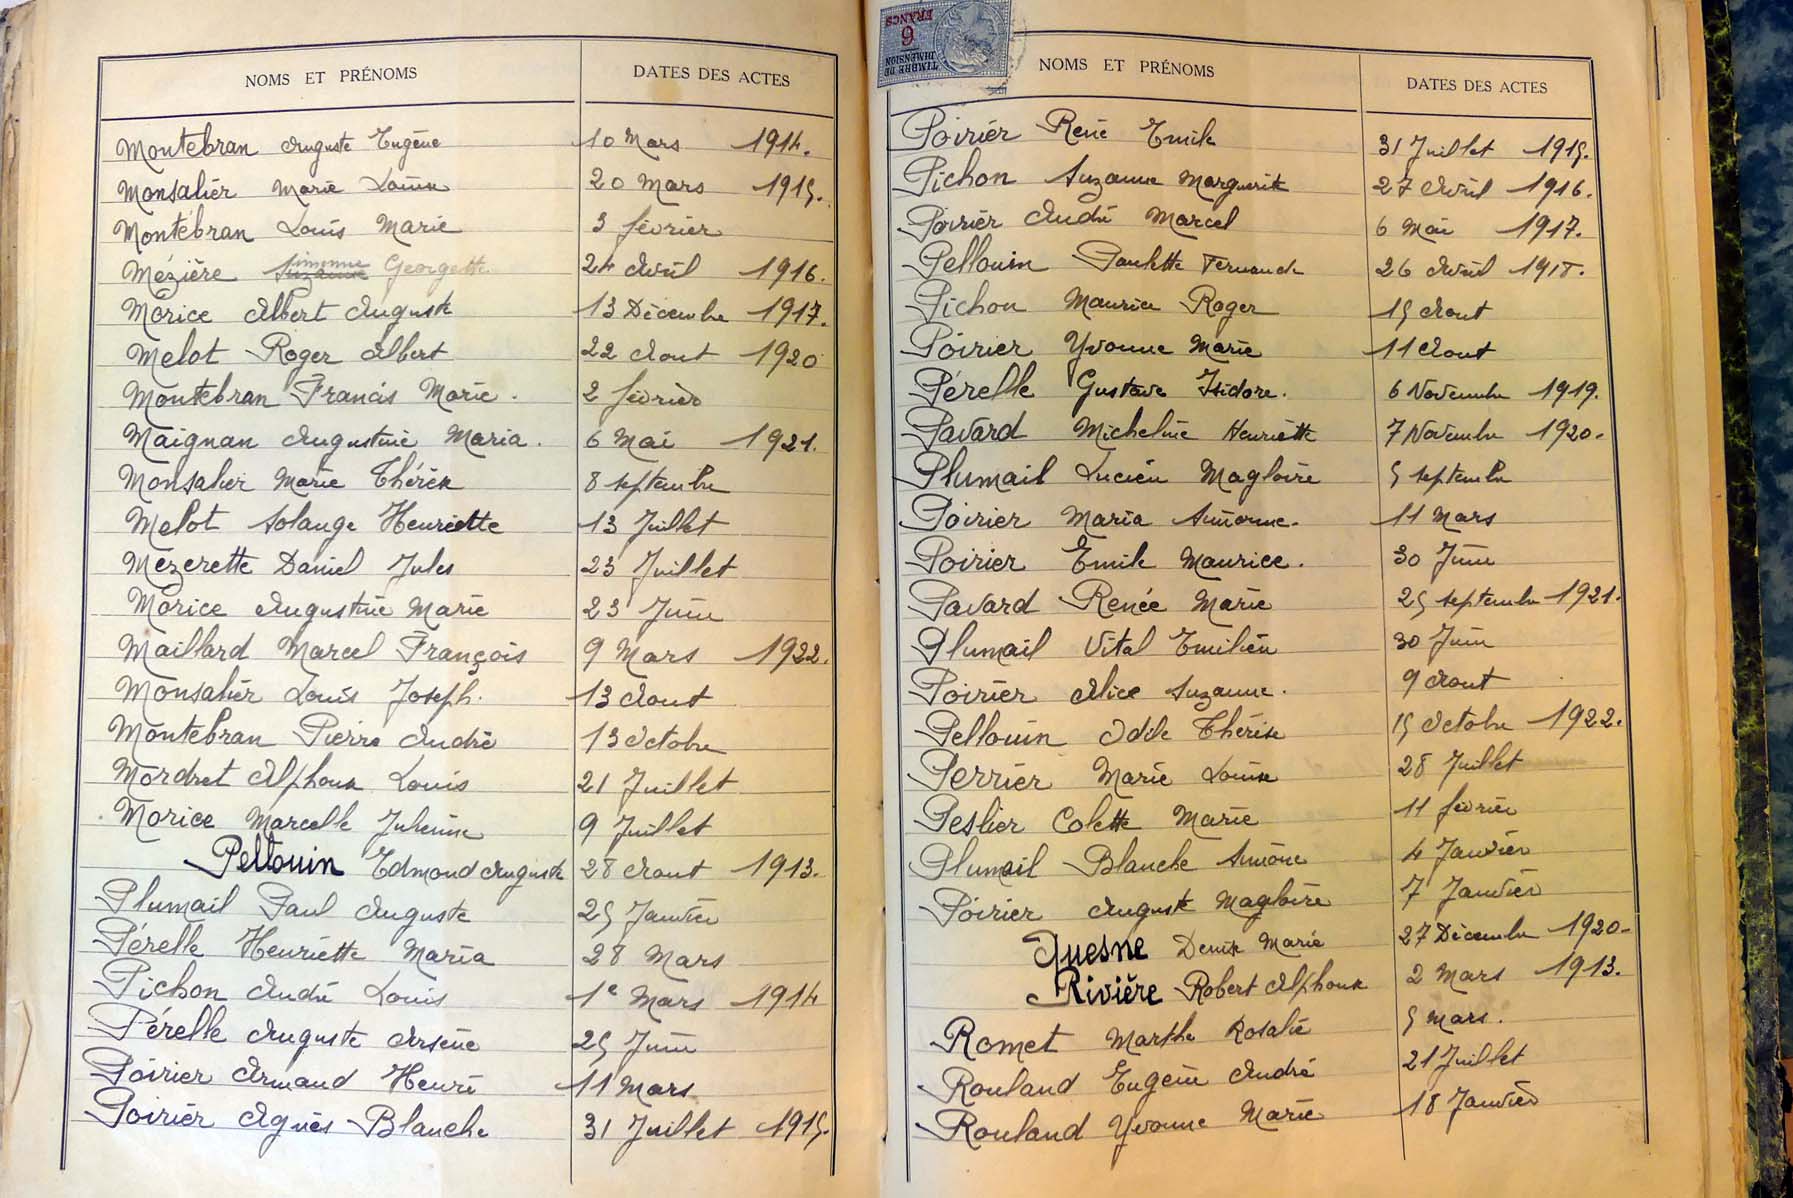 NOMS ET PRÉNOMS DATES DES ACTES
Montebran Auguste Eugène 10 Mars 1914.
Monsalier Marie Louise 20 Mars 1915.
Montébran Louis Marie 3 février
Mézière Suzanne Simonne Georgette 24 Avril 1916.
Morice Albert Auguste 13 Décembre 1917.
Melot Roger Albert 22 Aout 1920
Montebran Francis Marie. 2 février
Maignan Augustine Maria. 6 Mai 1921.
Monsalier Marie Thérèse 8 septembre
Melot Solange Henriette 13 Juillet
Mézerette Daniel Jules 23 Juillet
Morice Augustine Marie 23 Juin
Maillard Marcel François 9 Mars 1922.
Monsalier Louis Joseph. 13 Aout
Montebran Pierre André 13 Octobre
Mordret Alphonse Louis 21 Juillet
Morice Marcelle Julienne 9 Juillet
Pellouin Edmond Auguste 28 Aout 1913.
Plumail Paul Auguste 25 Janvier
Pérelle Henriette Maria 28 Mars
Pichon André Louis 1e Mars 1914
Pérelle Auguste Arsène 25 Juin
Poirier Armand Henri 11 Mars
Poirier Agnès Blanche 31 Juillet 1915.
TIMBRE DE DIMENSION
9 FRANCS
NOMS ET PRÉNOMS DATES DES ACTES
Poirier René Emile 31 Juillet 1915.
Pichon Suzanne Marguerite 27 Avril 1916.
Poirier André Marcel 6 Mai 1917.
Pellouin Paulette Fernande 26 Avril 1918.
Pichon Maurice Roger 15 Aout
Poirier Yvonne Marie 11 Aout
Pérelle Gustave Isidore. 6 Novembre 1919.
Pavard Micheline Henriette 7 Novembre 1920.
Plumail Lucien Magloire 5 septembre
Poirier Maria Simonne. 11 Mars
Poirier Emile Maurice. 30 Juin
Pavard Renée Marie 25 septembre 1921.
Plumail Vital Emilien 30 Juin
Poirier Alice Suzanne. 9 Aout
Pellouin Odile Thérèse 15 Octobre 1922.
Perrier Marie Louise 28 Juillet
Peslier Colette Marie 11 février
Plumail Blanche Simone 4 Janvier
Poirier Auguste Magloire 7 Janvier
Quesne Denise Marie 27 Décembre 1920.
Rivière Robert Alphonse 2 Mars 1913.
Romet Marthe Rosalie 5 mars.
Rouland Eugène André 21 Juillet
Rouland Yvonne Marie 18 Janvier